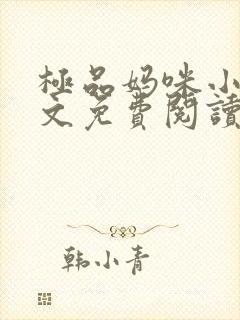 極品妈咪小
文免費閱讀
韩小青